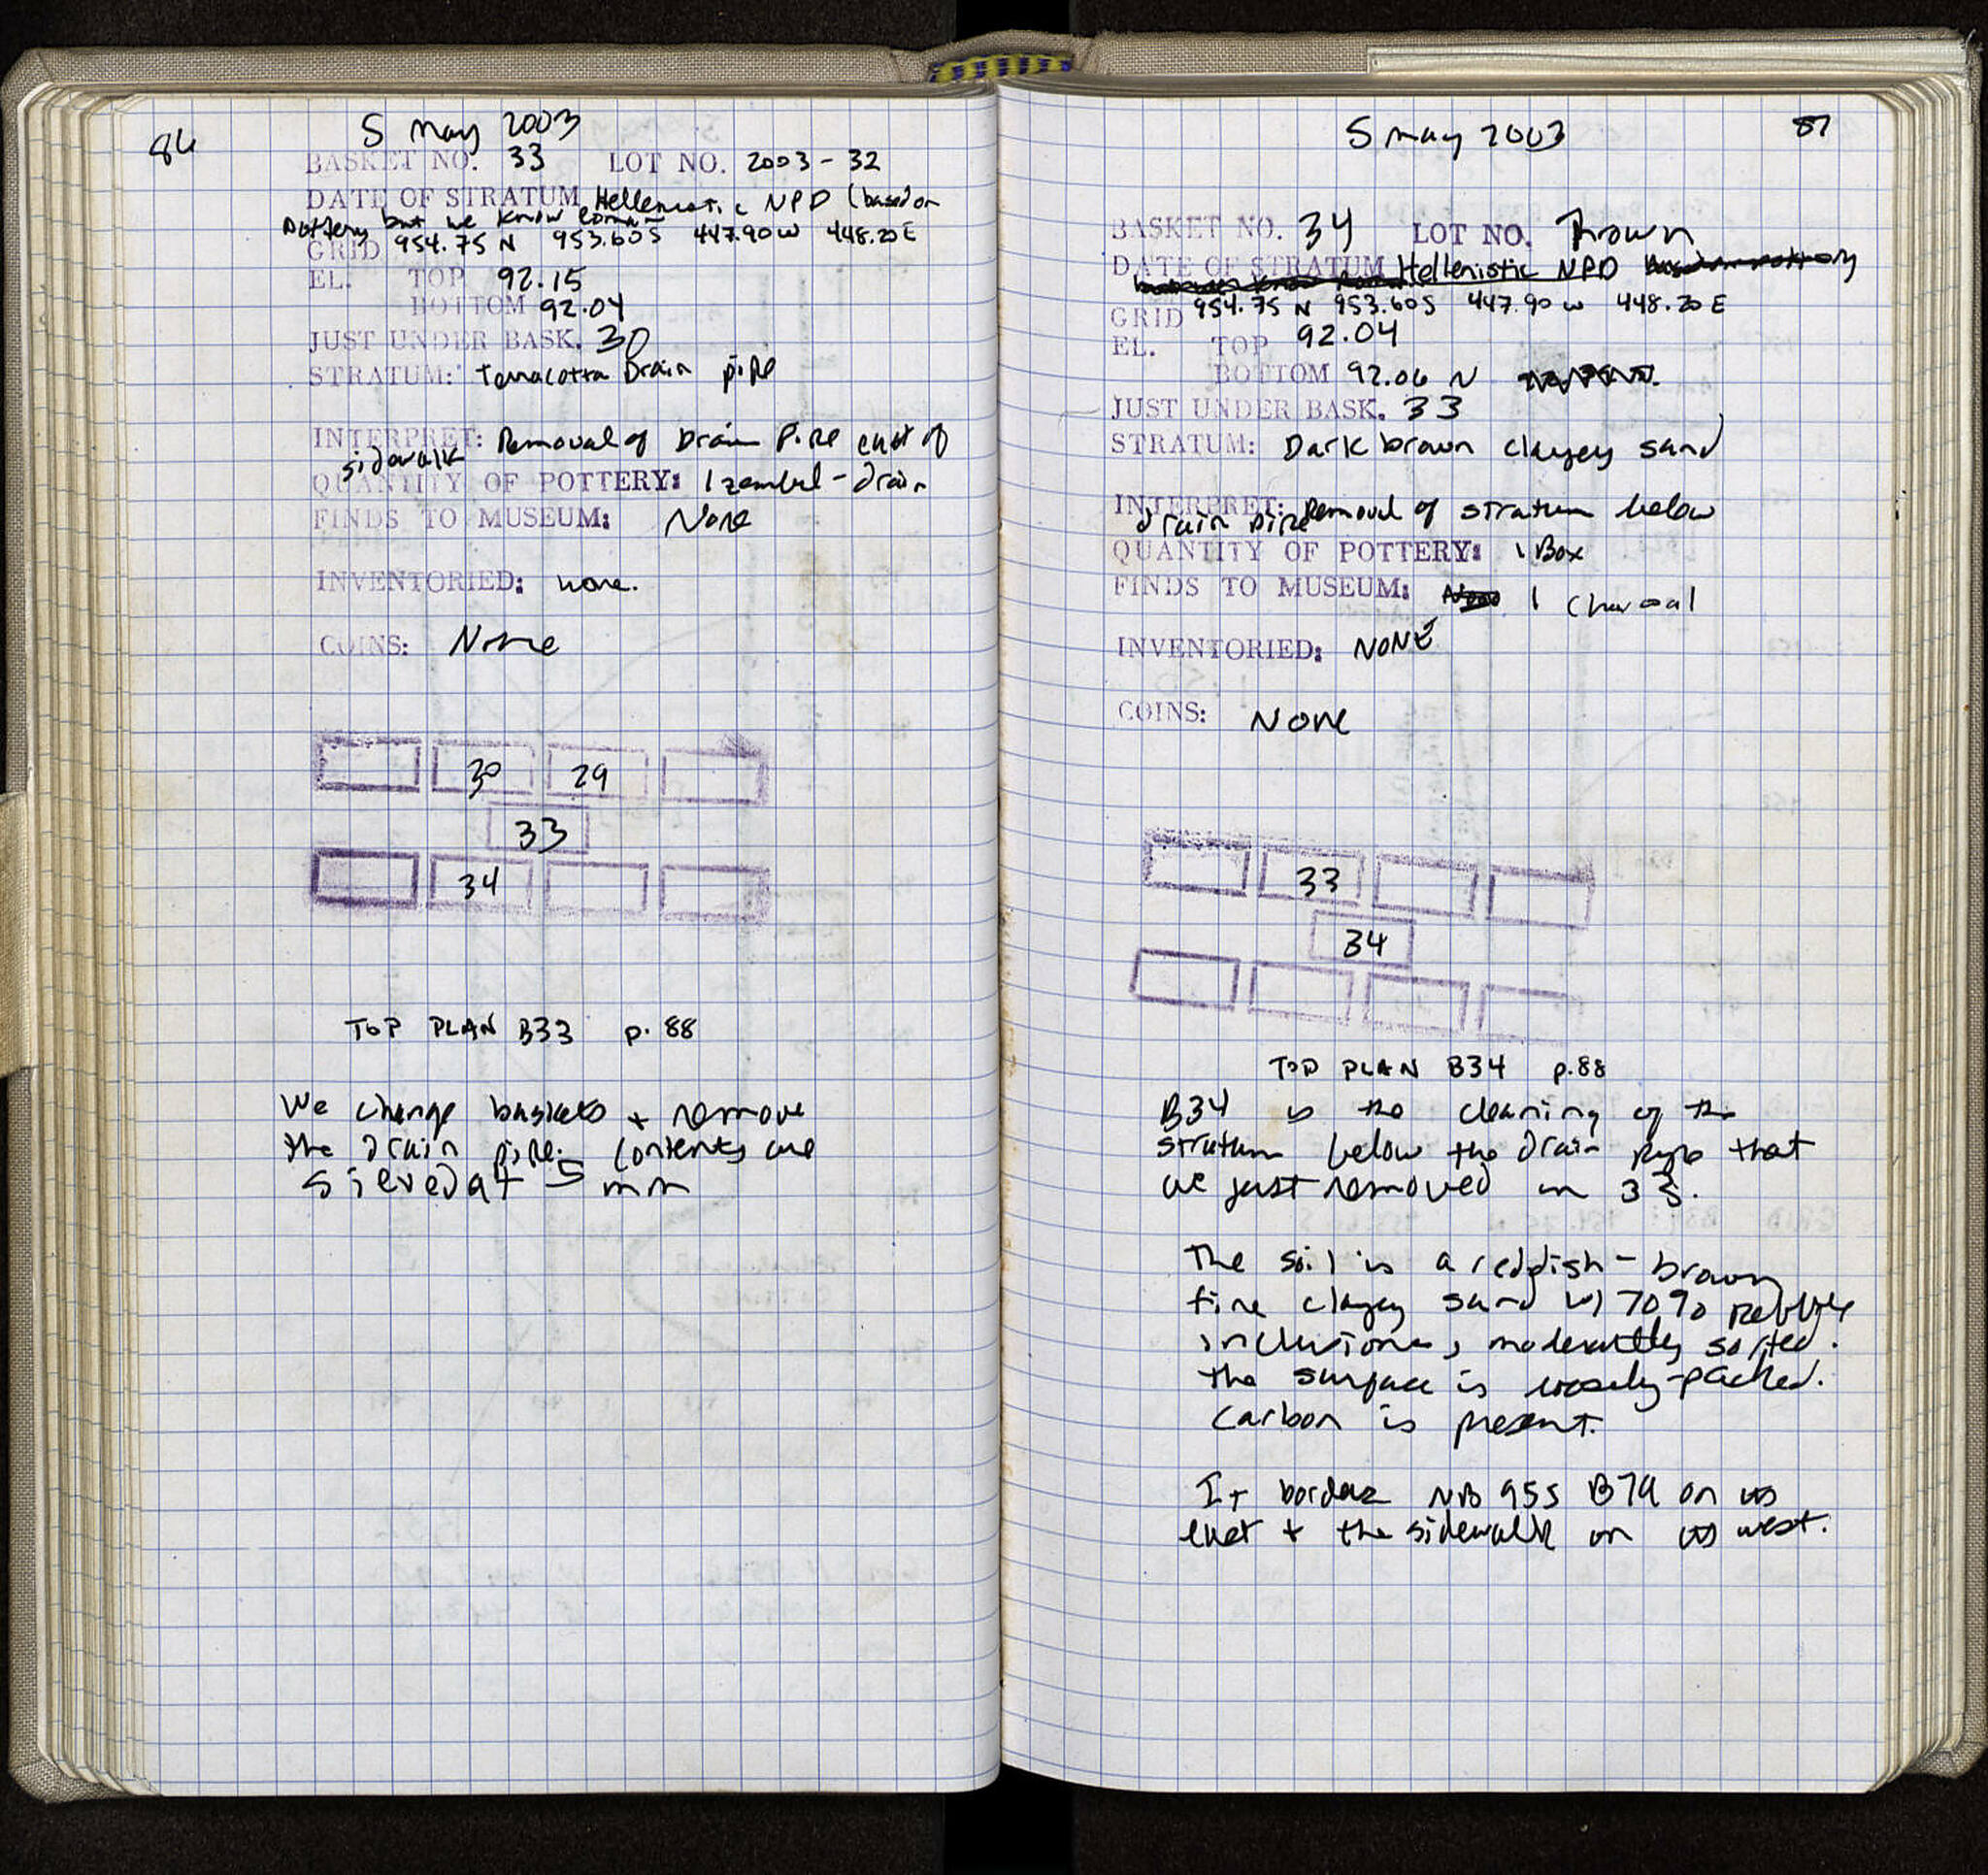 86
5 May 2003
BASKET NO. 33 LOT NO. 2003-32
DATE OF STRATUM Hellenistic NPD (based on
pottery but we know Roman
GRID 954.75 N 953.60 S 447.90 W 448.20 E
EL. TOP 92.15
BOTTOM 92.04
JUST UNDER BASK. 30
STRATUM: Terracotta Drain pipe
INTERPRET: Removal of Drain Pipe east of
sidewalk
QUANTITY OF POTTERY: 1 zembel - drain
FINDS TO MUSEUM: None
INVENTORIED: none.
COINS: None
30 29
33
34
TOP PLAN B33 p. 88
We change baskets + remove
the drain pipe. Contents are
sieved at 5 mm
5 May 2003
87
BASKET NO. 34 LOT NO. Thrown
DATE OF STRATUM Hellenistic NPD
GRID 954.75 N 953.60 S 447.90 W 448.20 E
EL. TOP 92.04
BOTTOM 92.06 N
JUST UNDER BASK. 33
STRATUM: Dark brown clayey sand
INTERPRET: Removal of stratum below
drain pipe
QUANTITY OF POTTERY: 1 Box
FINDS TO MUSEUM: 1 Charcoal
INVENTORIED: NONE
COINS: None
33
34
TOP PLAN B34 p.88
B34 is the cleaning of the
stratum below the drain pipe that
we just removed in 33.
The soil is a reddish-brown
fine clayey sand w/ 70% pebble
inclusions, moderately sorted.
The surface is loosely-packed.
Carbon is present.
It borders NB 955 B79 on its
east + the sidewalk on its west.